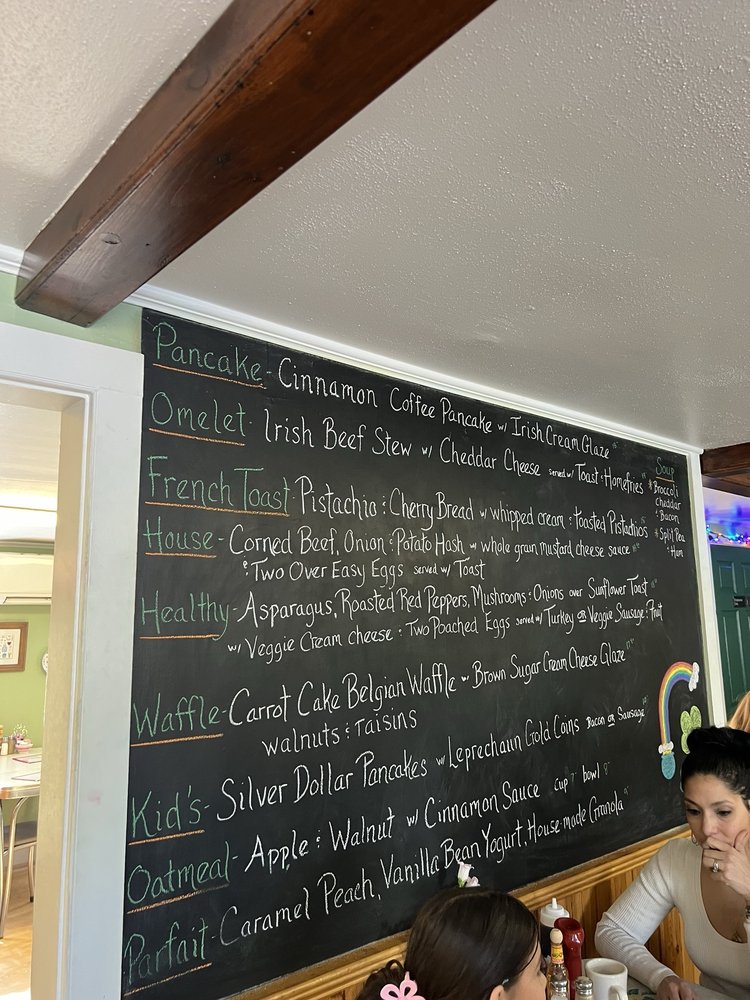 Pancake - Cinnamon Coffee Pancake w/ Irish Cream Glaze
Omelet - Irish Beef Stew w/ Cheddar Cheese served w/ Toast & Homefries
French Toast - Pistachio & Cherry Bread w/ whipped cream & Toasted Pistachios
House - Corned Beef, Onion & Potato Hash w/ whole grain mustard cheese sauce
& Two Over Easy Eggs served w/ Toast
Healthy - Asparagus, Roasted Red Peppers, Mushrooms & Onions over Sunflower Toast
w/ Veggie Cream cheese & Two Poached Eggs served w/ Turkey OR Veggie Sausage & Fruit
Waffle - Carrot Cake Belgian Waffle w/ Brown Sugar Cream Cheese Glaze
walnuts & raisins
Kid's - Silver Dollar Pancakes w/ Leprechaun Gold Coins Bacon OR Sausage
Oatmeal - Apple & Walnut w/ Cinnamon Sauce cup bowl
Parfait - Caramel Peach, Vanilla Bean Yogurt, House-made Granola
Soup
* Broccoli
Cheddar
& Bacon
* Split Pea
& Ham